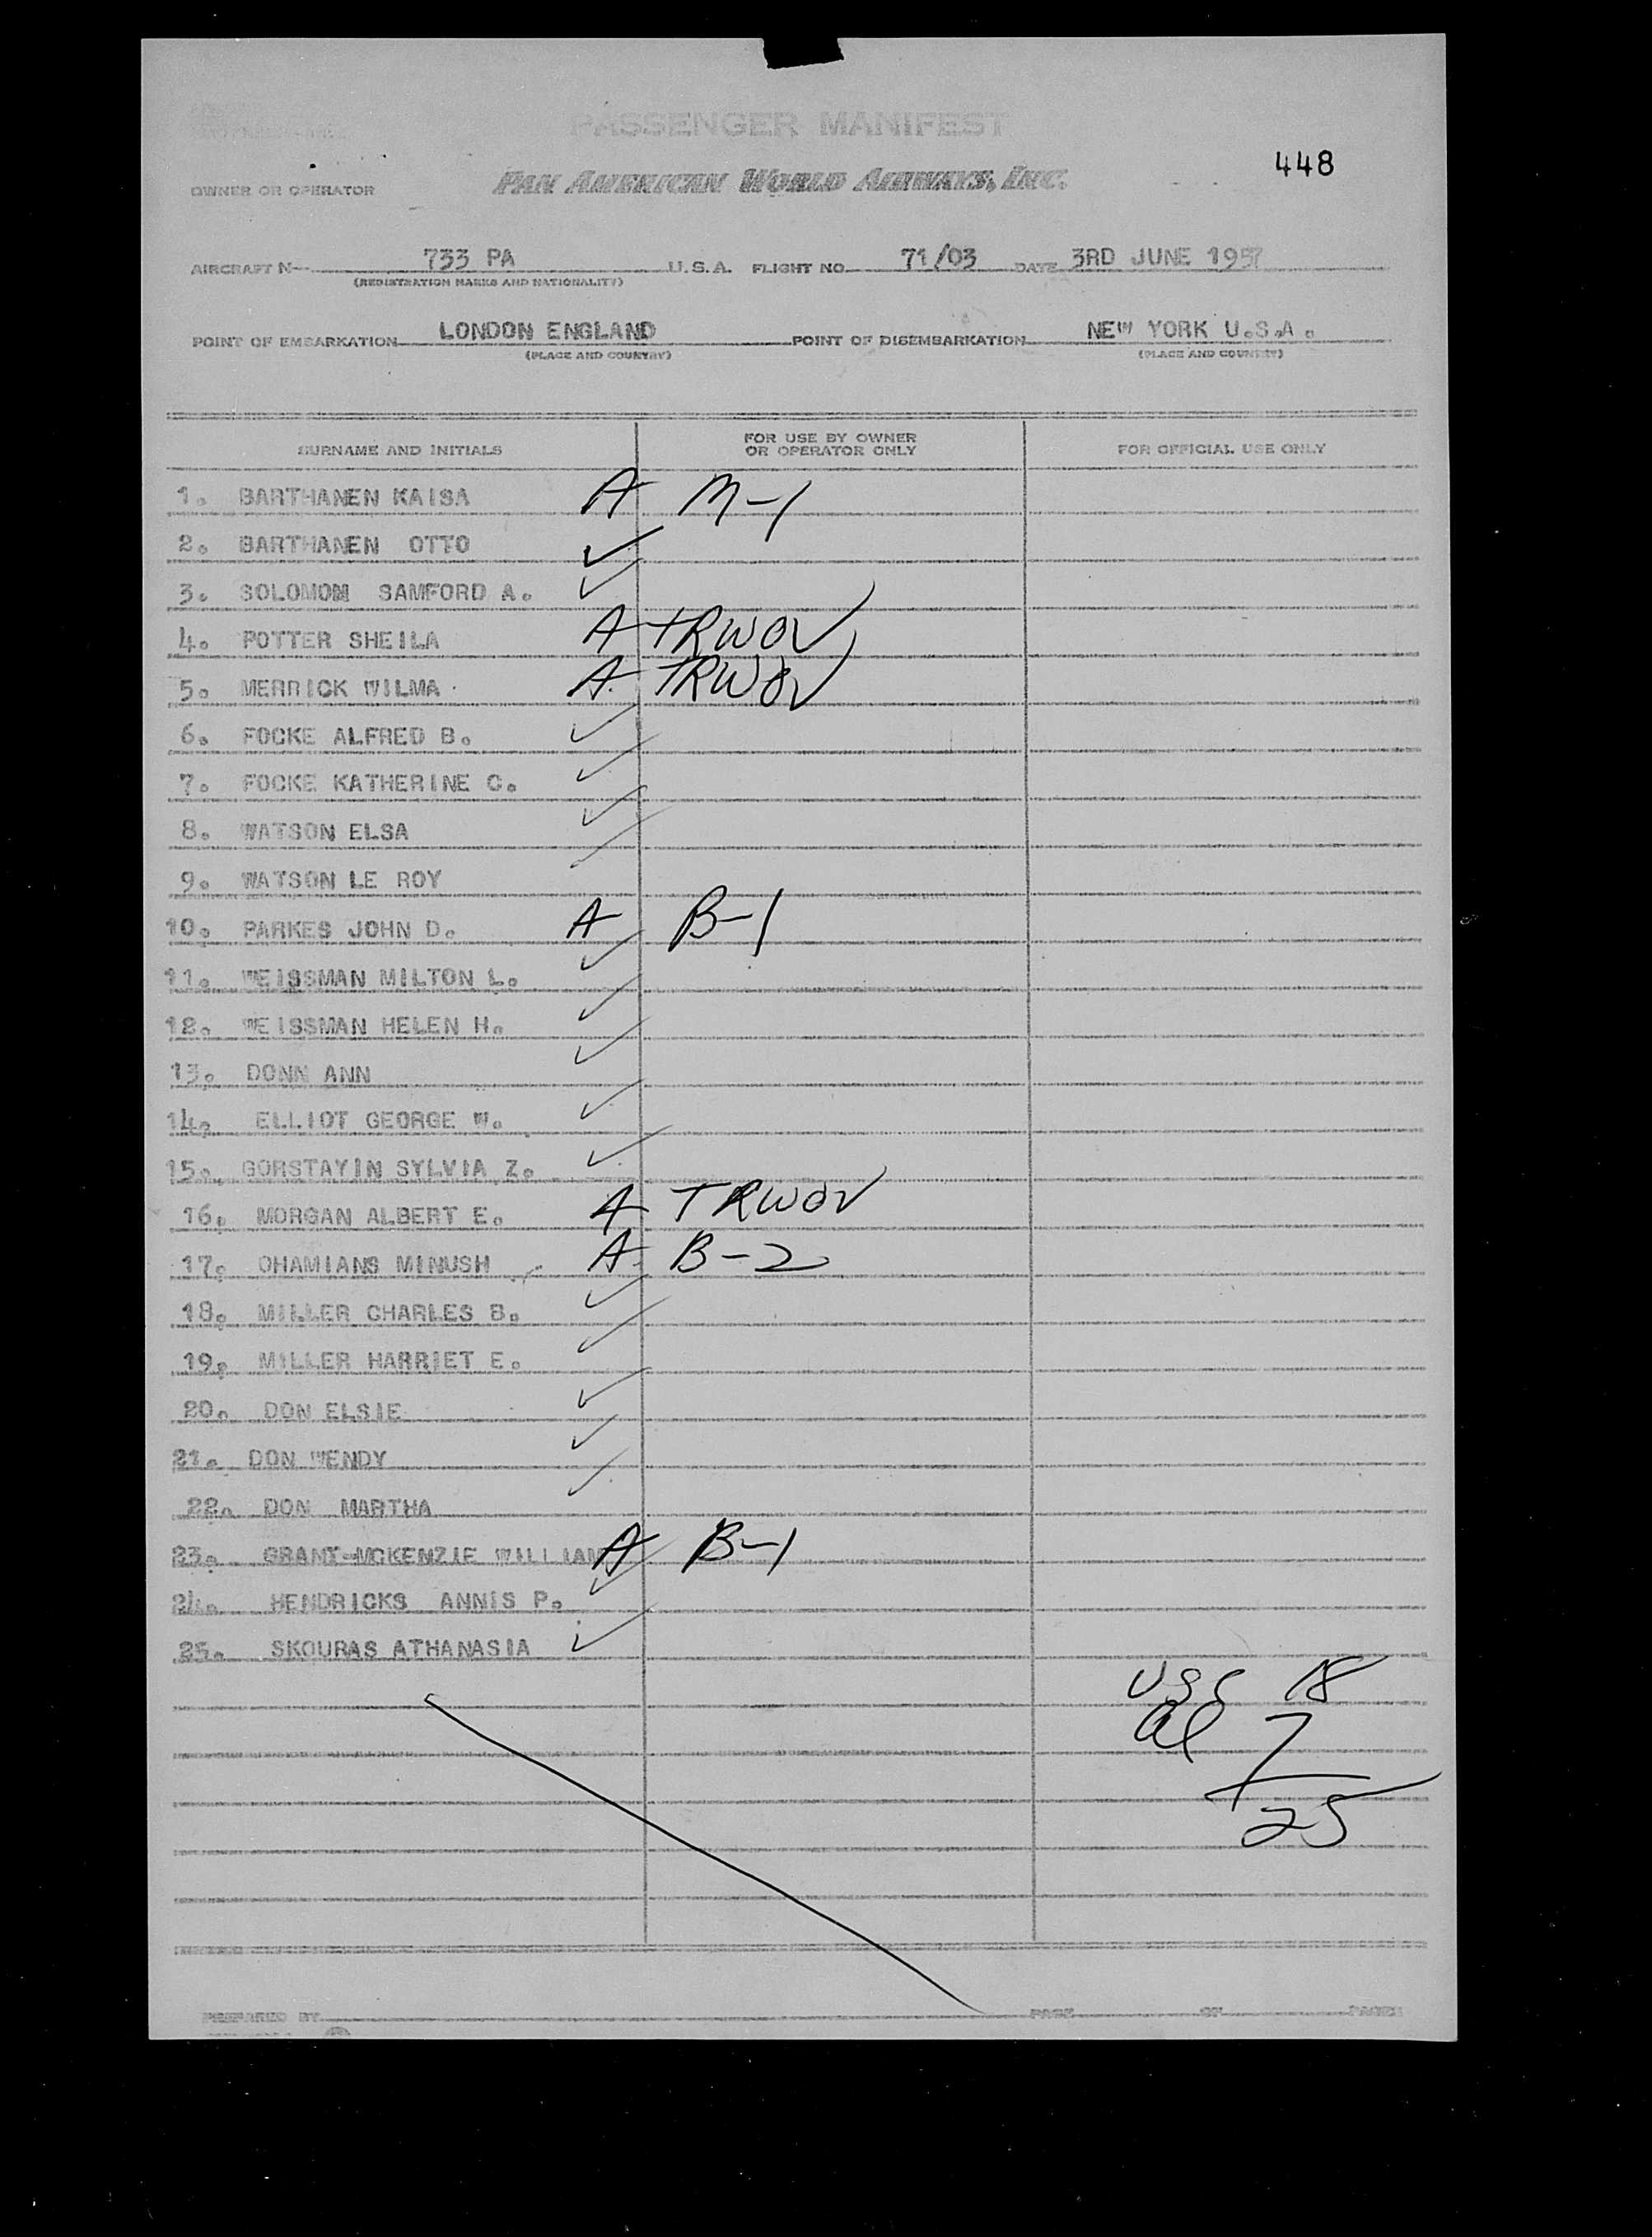 PASSENGER MANIFEST
448
OWNER OR OPERATOR PAN AMERICAN WORLD AIRWAYS, INC.
AIRCRAFT N 733 PA U.S.A. FLIGHT NO. 71/03 DATE 3RD JUNE 1957
(REGISTRATION MARKS AND NATIONALITY)
POINT OF EMBARKATION LONDON ENGLAND POINT OF DISEMBARKATION NEW YORK U.S.A.
(PLACE AND COUNTRY) (PLACE AND COUNTRY)
SURNAME AND INITIALS FOR USE BY OWNER OR OPERATOR ONLY FOR OFFICIAL USE ONLY
1. BARTHANEN KAISA A M-1
2. BARTHANEN OTTO ✓
3. SOLOMON SAMFORD A. ✓
4. POTTER SHEILA A TRWOV
5. MERRICK WILMA A. TRWOV
6. FOCKE ALFRED B. ✓
7. FOCKE KATHERINE C. ✓
8. WATSON ELSA ✓
9. WATSON LE ROY ✓
10. PARKES JOHN D. A B-1
11. WEISSMAN MILTON L. ✓
12. WEISSMAN HELEN H. ✓
13. DONN ANN ✓
14. ELLIOT GEORGE W. ✓
15. GORSTAYIN SYLVIA Z. ✓
16. MORGAN ALBERT E. A TRWOV
17. OHAMIANS MINUSH A B-2
18. MILLER CHARLES B. ✓
19. MILLER HARRIET E. ✓
20. DON ELSIE ✓
21. DON WENDY ✓
22. DON MARTHA ✓
23. GRANT-MCKENZIE WILLIAM A B-1
24. HENDRICKS ANNIS P. ✓
25. SKOURAS ATHANASIA ✓
USC 18
al 7
25
PREPARED BY PAGE OF PAGES